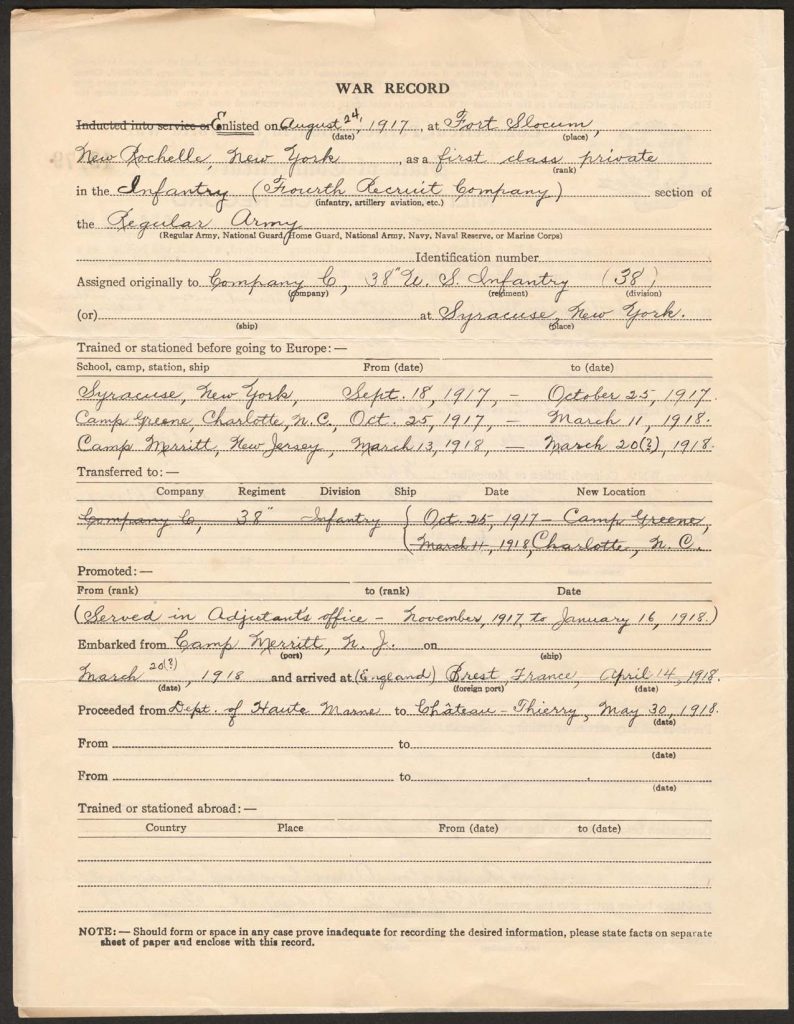 WAR RECORD
Inducted into service or Enlisted on August 24, 1917, at Fort Slocum,
(date) (place)
New Rochelle, New York, as a first class private
(rank)
in the Infantry (Fourth Recruit Company) section of
(infantry, artillery aviation, etc.)
the Regular Army
(Regular Army, National Guard, Home Guard, National Army, Navy, Naval Reserve, or Marine Corps)
Identification number
Assigned originally to Company C, 38" U. S. Infantry (38)
(company) (regiment) (division)
(or) at Syracuse, New York.
(ship) (place)
Trained or stationed before going to Europe:—
School, camp, station, ship From (date) to (date)
Syracuse, New York, Sept. 18, 1917, – October 25, 1917.
Camp Greene, Charlotte, N.C., Oct. 25, 1917, — March 11, 1918.
Camp Merritt, New Jersey, March 13, 1918, — March 20(?), 1918.
Transferred to:—
Company Regiment Division Ship Date New Location
Company C, 38" Infantry ( Oct. 25, 1917 – Camp Greene,
(March 11, 1918, Charlotte, N. C.
Promoted:—
From (rank) to (rank) Date
(Served in Adjutant's office – November, 1917 to January 16, 1918.)
Embarked from Camp Merritt, N. J. on
(port) (ship)
March 20(?), 1918 and arrived at (England) Brest, France, April 14, 1918.
(date) (foreign port) (date)
Proceeded from Dept. of Haute Marne to Château-Thierry, May 30, 1918.
(date)
From to
(date)
From to
(date)
Trained or stationed abroad:—
Country Place From (date) to (date)
NOTE:— Should form or space in any case prove inadequate for recording the desired information, please state facts on separate
sheet of paper and enclose with this record.